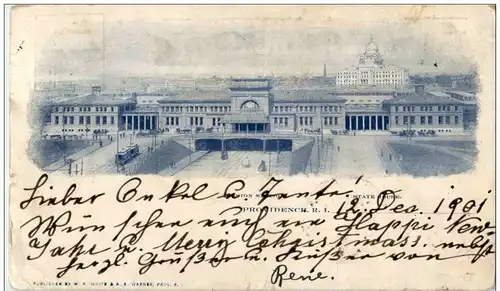 UNION STATION STATE HOUSE.
PROVIDENCE, R. I.
Lieber Onkel u. Tante! 12 Dec. 1901
Wünschen euch ein Happi New-
Jahr u. Merry Christmass. nebst
herzl. Grüßen u. Küssen von
Rene.
PUBLISHED BY W. R. WHITE & A. E. WARNER, PROV. R. I.